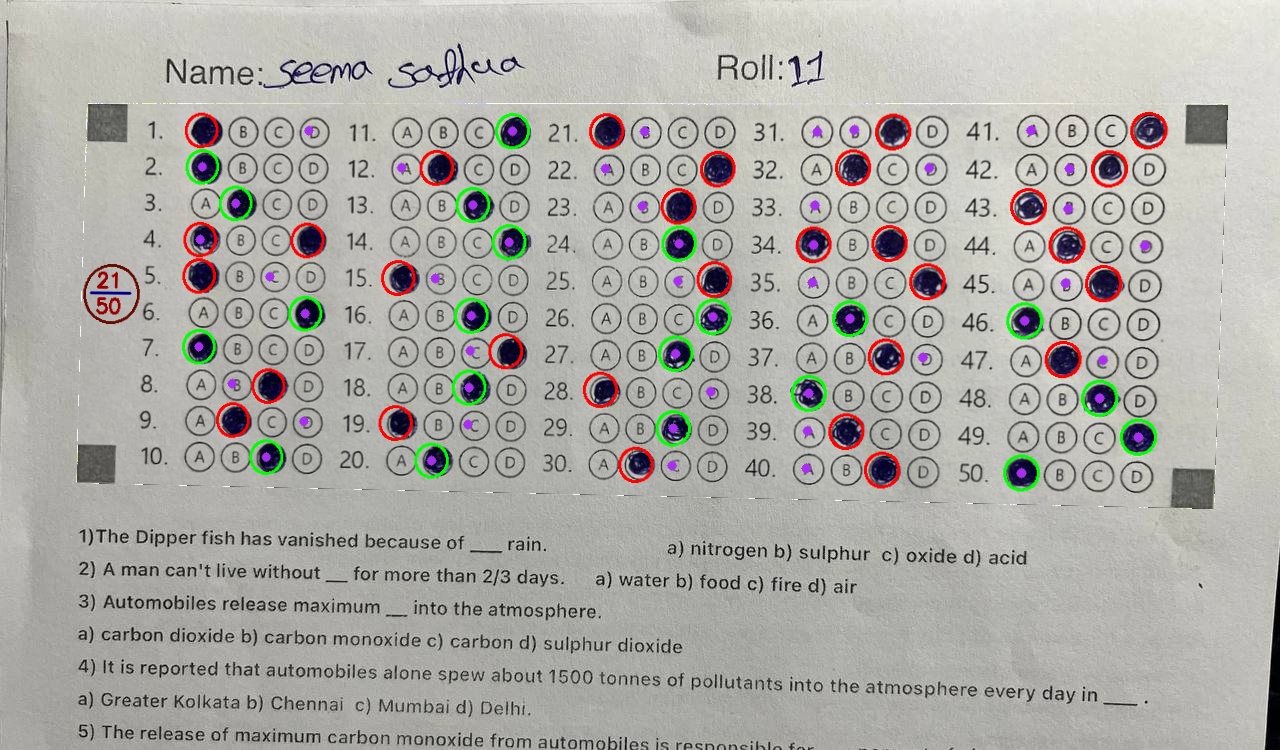 Name: Seema Roll: 11
1. B C D 11. A B C 21. B C D 31. A B D 41. A B C
2. B C D 12. A C D 22. A B C 32. A C D 42. A B D
3. A C D 13. A B D 23. A B D 33. A B C D 43. B C D
4. B C 14. A B C 24. A B D 34. B D 44. A C D
5. B C D 15. B C D 25. A B C 35. A B C 45. A B D
21
50
6. A B C 16. A B D 26. A B C 36. A C D 46. B C D
7. B C D 17. A B C 27. A B D 37. A B D 47. A C D
8. A B D 18. A B D 28. B C D 38. B C D 48. A B D
9. A C D 19. B C D 29. A B D 39. A C D 49. A B C
10. A B D 20. A C D 30. A C D 40. A B D 50. B C D
1)The Dipper fish has vanished because of ___ rain. a) nitrogen b) sulphur c) oxide d) acid
2) A man can't live without __ for more than 2/3 days. a) water b) food c) fire d) air
3) Automobiles release maximum __ into the atmosphere.
a) carbon dioxide b) carbon monoxide c) carbon d) sulphur dioxide
4) It is reported that automobiles alone spew about 1500 tonnes of pollutants into the atmosphere every day in ___ .
a) Greater Kolkata b) Chennai c) Mumbai d) Delhi.
5) The release of maximum carbon monoxide from automobiles is responsible for